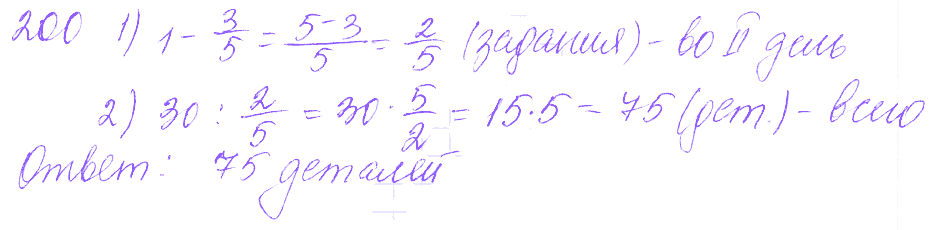 200 1) 1 - 3/5 = (5-3)/5 = 2/5 (задания) - во II день
2) 30 : 2/5 = 30 · 5/2 = 15·5 = 75 (дет.) - всего
Ответ: 75 деталей